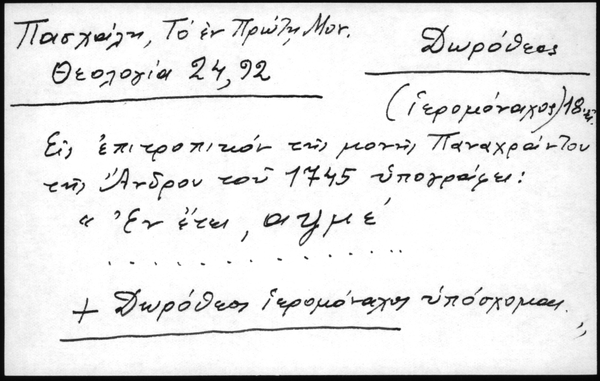 Πασχάλη, Τό ἐν Πρώτῃ Μον.
Θεολογία 24,92
Δωρόθεος
(ἱερομόναχος) 18
Εἰς ἐπιτροπικόν τῆς μονῆς Παναχράντου
τῆς Ἄνδρου τοῦ 1745 ὑπογράφει:
“ Ἐν ἔτει, αψμέ
. . . . . . . . . . . .
+ Δωρόθεος ἱερομόναχος ὑπόσχομαι. ”